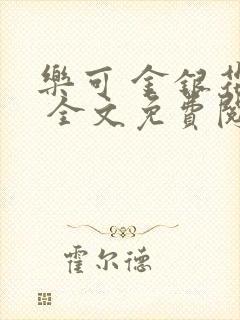 樂可 金銀花
全文免費閱
霍尔德